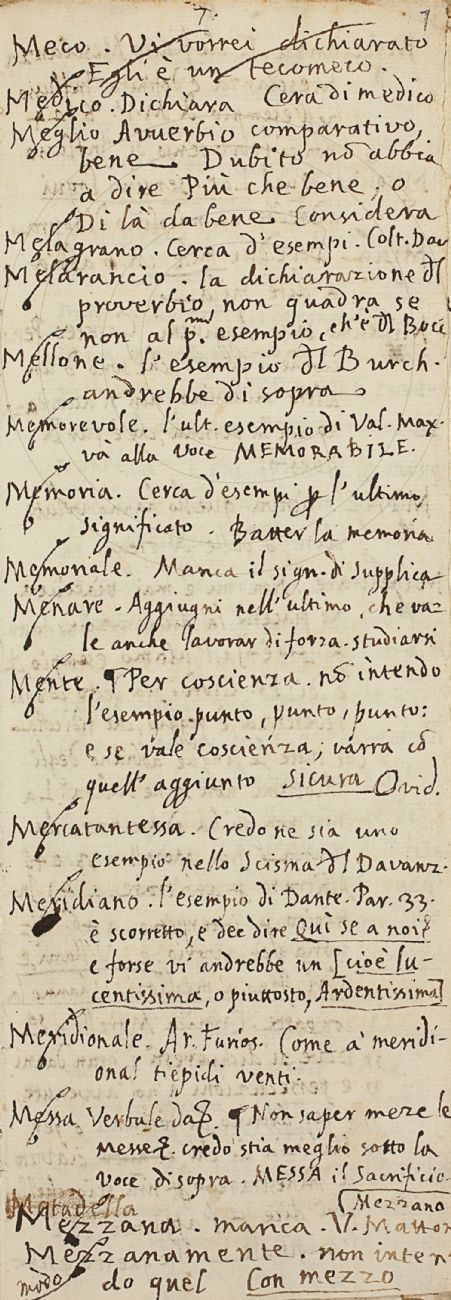 7. 7
Meco. Vi vorrei dichiarato
Egli è un tecomeco.
Medico. Dichiara Cera di medico
Meglio Avverbio comparativo,
bene. Dubito nõ abbia
a dire Più che bene, o
Di là da bene. Considera
Melagrano. Cerca d'esempi. Colt. Dav
Melarancio. la dichiarazione dl
proverbio, non quadra se
non al pmo. esempio, ch'è dl Bocc
Mellone. l'esempio dl Burch.
andrebbe di sopra
Memorevole. l'ult. esempio di Val. Max.
và alla voce MEMORABILE.
Memoria. Cerca d'esempi p l'ultimo
significato. Batter la memoria
Memoriale. Manca il sign. di Supplica
Menare. Aggiugni nell'ultimo, che va-
le anche lavorar di forza. studiarsi
Mente. ¶ Per coscienza. nõ intendo
l'esempio. punto, punto, punto:
e se vale coscienza; varrà cõ
quell'aggiunto sicura Ovid.
Mercatantessa. Credo ne sia uno
esempio nello Scisma dl Davanz.
Meridiano. l'esempio di Dante. Par. 33.
è scorretto, e dee dire Qui se a noi
e forse vi andrebbe un [cioè lu-
centissima, o piuttosto, Ardentissima]
Meridionale. Ar. Furios. Come a' meridi-
onal tiepidi venti.
Messa Verbale da ¶ Non saper mezze le
messe. credo stia meglio sotto la
voce di sopra. MESSA il Sacrificio.
Metadella
Mezzano
Mezzana. manca. V. Matton
Mezzanamente. non inten-
do quel Con mezzo
modo